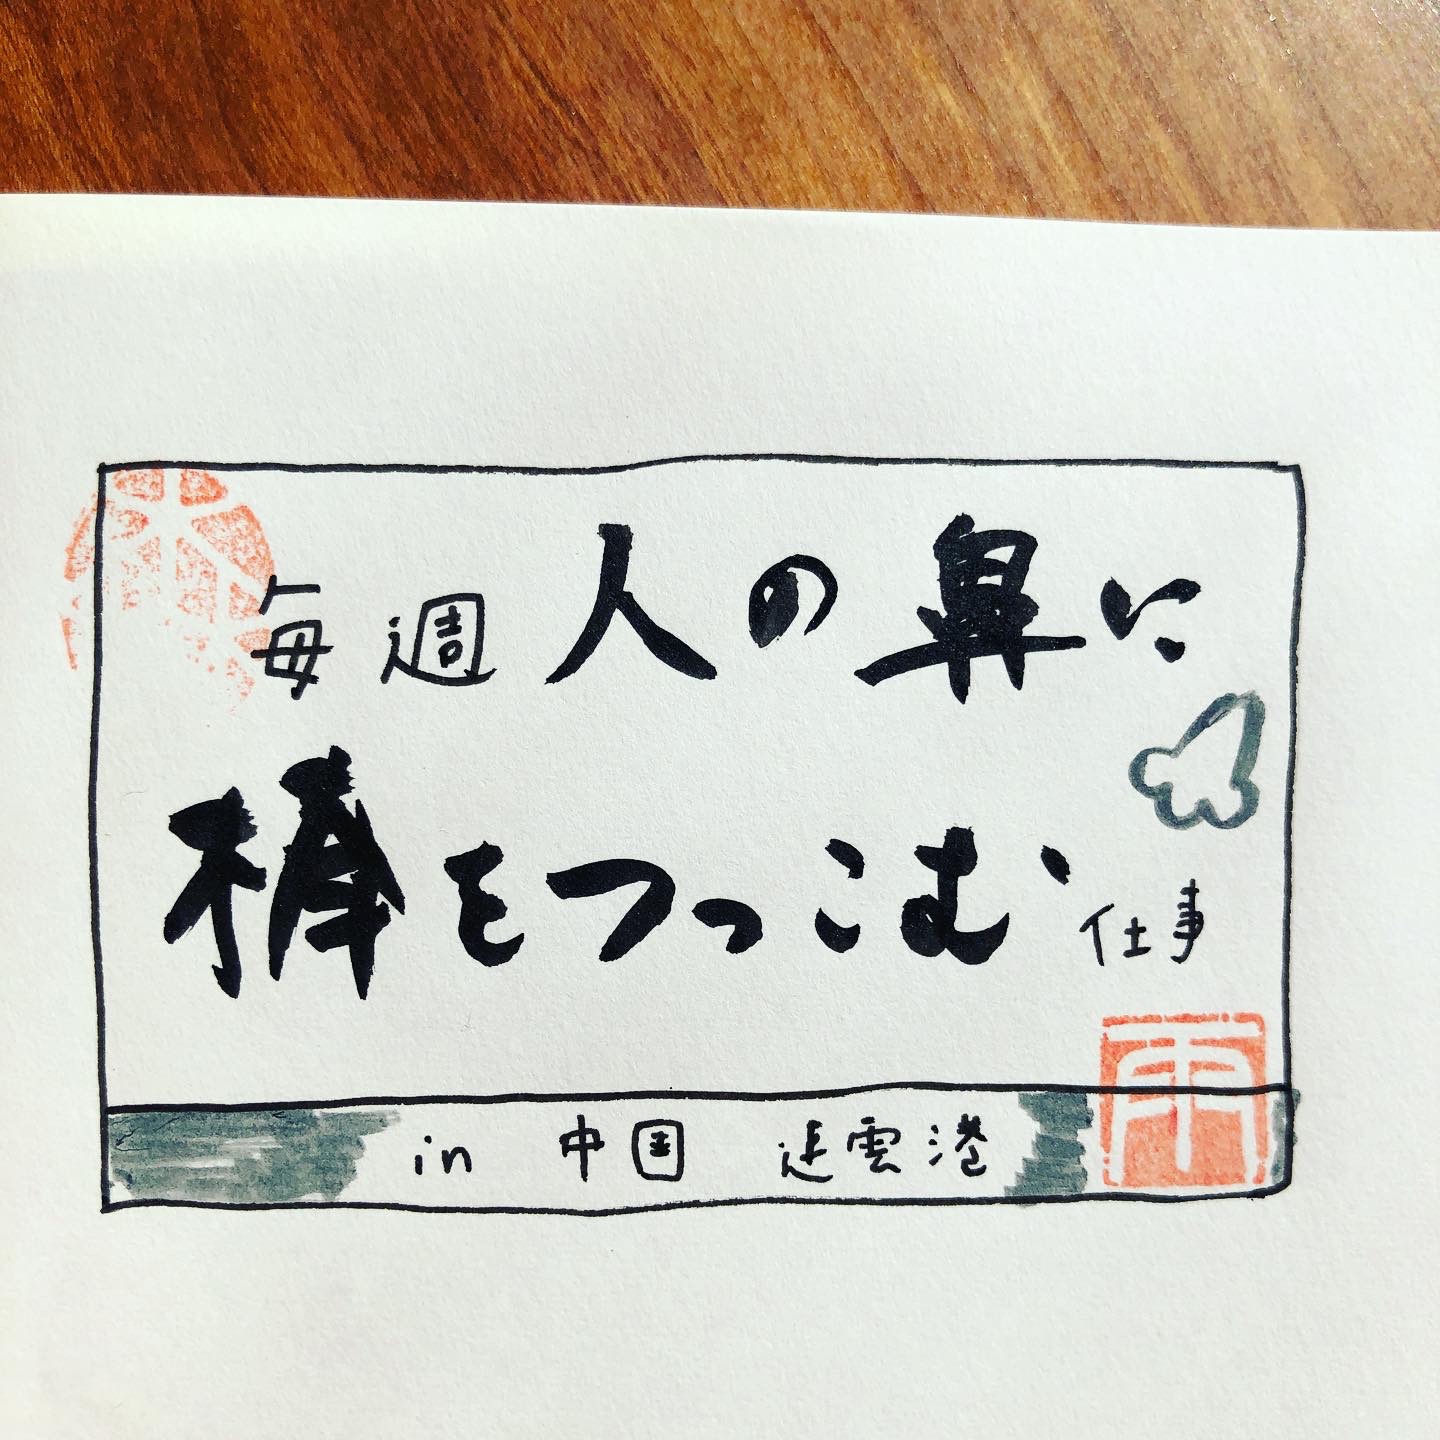 毎週人の鼻に
棒をつっこむ仕事
in 中国 連雲港